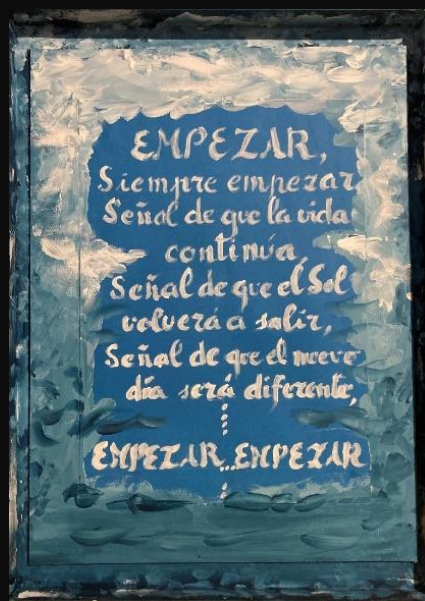 EMPEZAR,
Siempre empezar
Señal de que la vida
continúa,
Señal de que el Sol
volverá a salir,
Señal de que el nuevo
día será diferente,
EMPEZAR...EMPEZAR